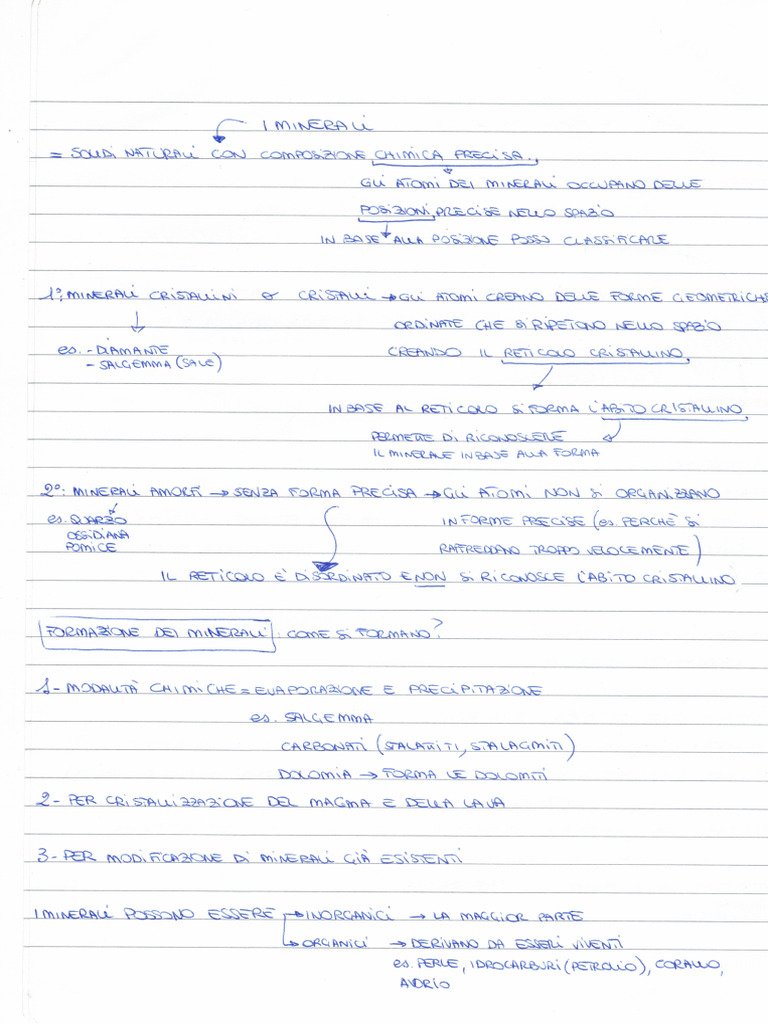 I MINERALI
= SOLIDI NATURALI CON COMPOSIZIONE CHIMICA PRECISA.
GLI ATOMI DEI MINERALI OCCUPANO DELLE
POSIZIONI PRECISE NELLO SPAZIO
IN BASE ALLA POSIZIONE POSSO CLASSIFICARE
1°: MINERALI CRISTALLINI O CRISTALLI → GLI ATOMI CREANO DELLE FORME GEOMETRICHE
ORDINATE CHE SI RIPETONO NELLO SPAZIO
es. - DIAMANTE
CREANDO IL RETICOLO CRISTALLINO.
- SALGEMMA (SALE)
IN BASE AL RETICOLO SI FORMA L'ABITO CRISTALLINO
PERMETTE DI RICONOSCERE
IL MINERALE IN BASE ALLA FORMA
2°: MINERALI AMORFI → SENZA FORMA PRECISA → GLI ATOMI NON SI ORGANIZZANO
es. QUARZO
IN FORME PRECISE (es. PERCHÈ SI
OSSIDIANA
POMICE
RAFFREDDANO TROPPO VELOCEMENTE)
IL RETICOLO È DISORDINATO E NON SI RICONOSCE L'ABITO CRISTALLINO
FORMAZIONE DEI MINERALI: COME SI FORMANO?
1- MODALITÀ CHIMICHE = EVAPORAZIONE E PRECIPITAZIONE
es. SALGEMMA
CARBONATI (STALATTITI, STALAGMITI)
DOLOMIA → FORMA LE DOLOMITI
2- PER CRISTALLIZZAZIONE DEL MAGMA E DELLA LAVA
3- PER MODIFICAZIONE DI MINERALI GIÀ ESISTENTI
I MINERALI POSSONO ESSERE → INORGANICI → LA MAGGIOR PARTE
→ ORGANICI → DERIVANO DA ESSERI VIVENTI
es. PERLE, IDROCARBURI (PETROLIO), CORALLO,
AVORIO